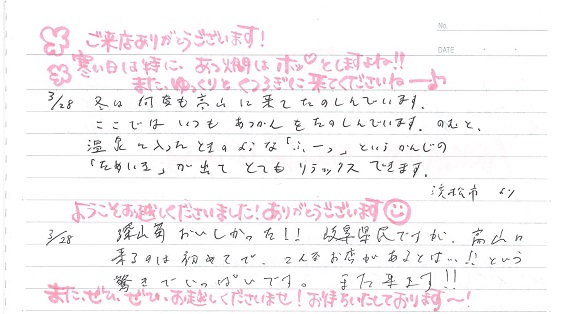 No.
DATE
ご来店ありがとうございます!
寒い日は特に、あつ燗はホッ♡としますよね!!
また、ゆっくりとくつろぎに来てくださいねー♪
3/28 冬は何度も高山に来てたのしんでいます。
ここではいつもあつかんをたのしんでいます。のむと、
温泉に入ったときのような「ふーっ」というかんじの
「ためいき」が出てとてもリラックスできます。
浜松市 より
ようこそお越しくださいました!ありがとうございます☺
3/28 深山菊おいしかった!! 岐阜県民ですが、高山に
来るのは初めてで、こんなお店があるとは…!!という
驚きでいっぱいです。また来ます!!
また、ぜひ、ぜひ、お越しくださいませ!お待ちいたしております〜!